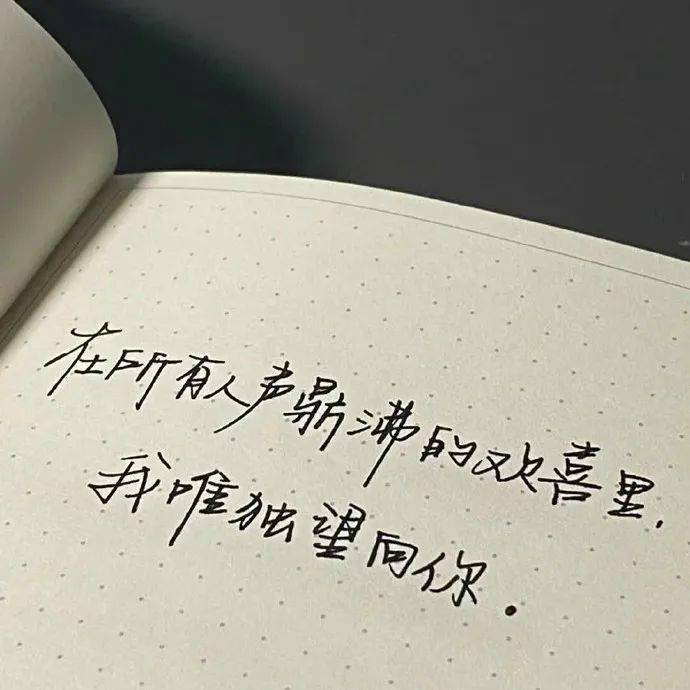 在所有人声鼎沸的欢喜里,
我唯独望向你.